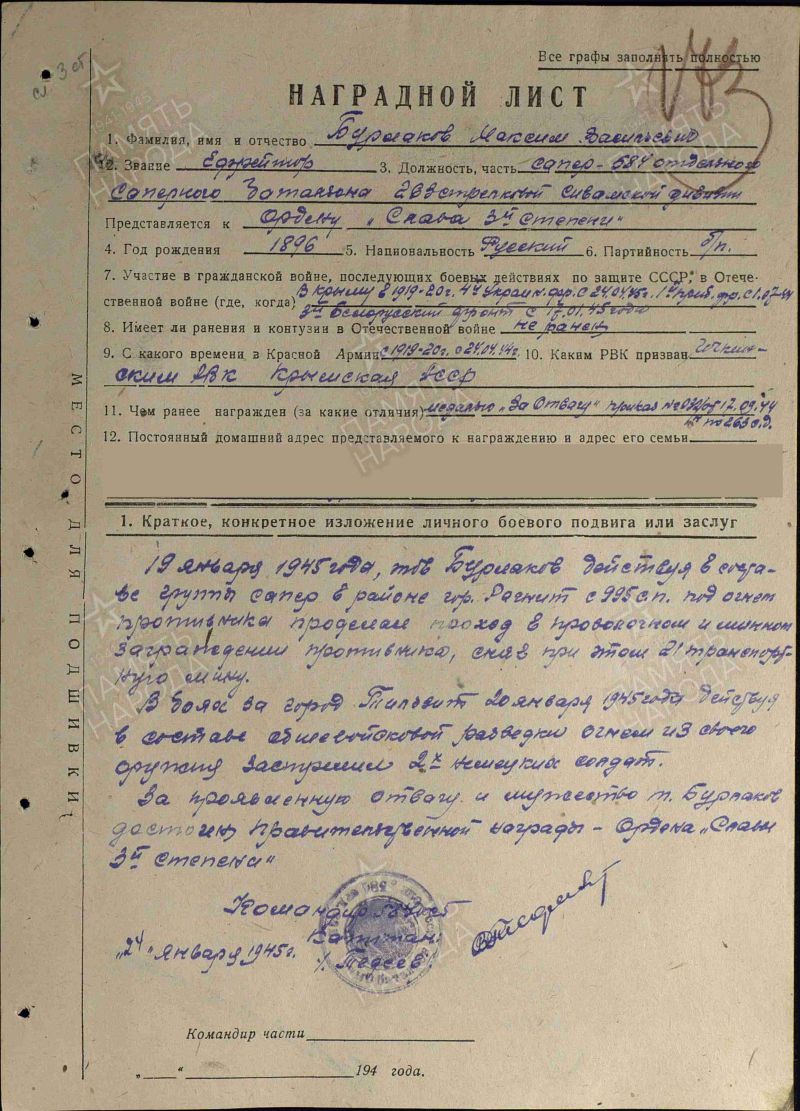 сл 3 ст
173
Все графы заполнять полностью
НАГРАДНОЙ ЛИСТ
1. Фамилия, имя и отчество Бурлаков Максим Васильевич
2. Звание Ефрейтор 3. Должность, часть сапер - 584 отдельного
Саперного Батальона 263 стрелковой Сивашской дивизии
Представляется к Ордену „Слава 3й Степени"
4. Год рождения 1896 5. Национальность Русский 6. Партийность б/п.
7. Участие в гражданской войне, последующих боевых действиях по защите СССР, в Отече-
ственной войне (где, когда) В Крыму в 1919-20г. 4й Украин. фр. с 24.04. 1й Приб. фр. с 1.07.44
3й Белорусский фронт с 01.45 года
8. Имеет ли ранения и контузии в Отечественной войне не ранен
9. С какого времени в Красной Армии с 1919-20г. с 24.04.44г. 10. Каким РВК призван
ским РВК Крымская АССР
11. Чем ранее награжден (за какие отличия) медалью „За Отвагу" приказ № 032/ от 12.09.44
по 263 с.д.
12. Постоянный домашний адрес представляемого к награждению и адрес его семьи
1. Краткое, конкретное изложение личного боевого подвига или заслуг
19 января 1945 года, тов Бурлаков действуя в соста-
ве группы сапер в районе гор. Рагнит с 995 сп. под огнем
противника проделал проход в проволочном и минном
заграждении противника, сняв при этом 21 транспорт-
ную мину.
В боях за город Тильзит 20 января 1945 года действуя
в составе общевойсковой разведки огнем из своего
оружия застрелил 2х немецких солдат.
За проявленную отвагу и мужество т. Бурлаков
достоин правительственной награды - Ордена „Славы
3й степени"
Командир 584 осб
Капитан
„24" января 1945г. /Тедеев/
Командир части
„ " 194 года.
МЕСТО ДЛЯ ПОДШИВКИ
ПАМЯТЬ НАРОДА